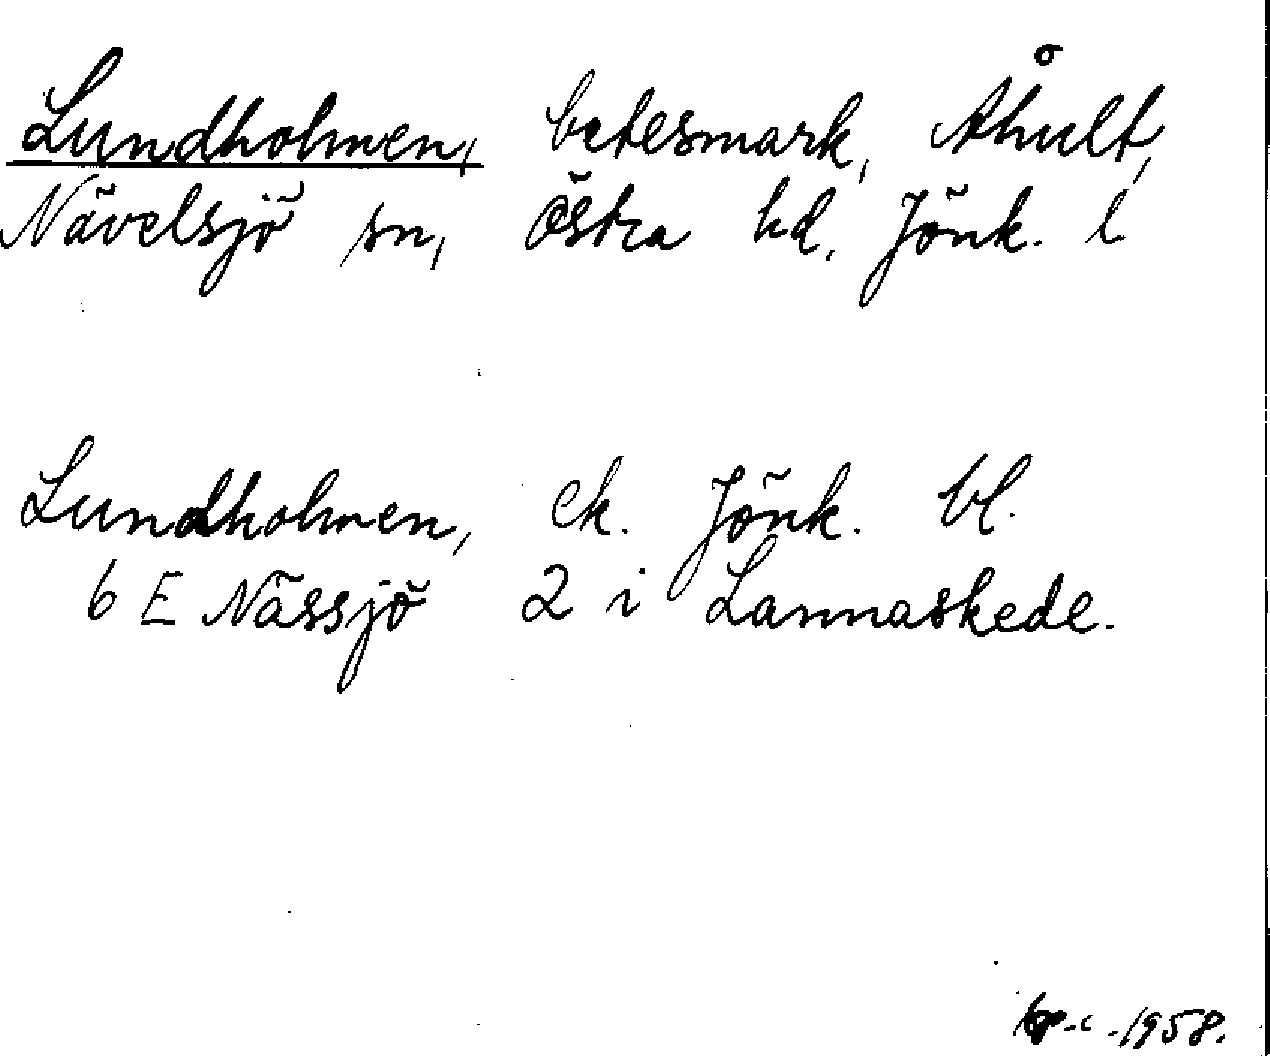 Lundholmen, betesmark, Åhult,
Nävelsjö sn, Östra hd. Jönk. l
Lundholmen, ek. Jönk. bl.
6 E Nässjö 2 i Lannaskede.
1958.